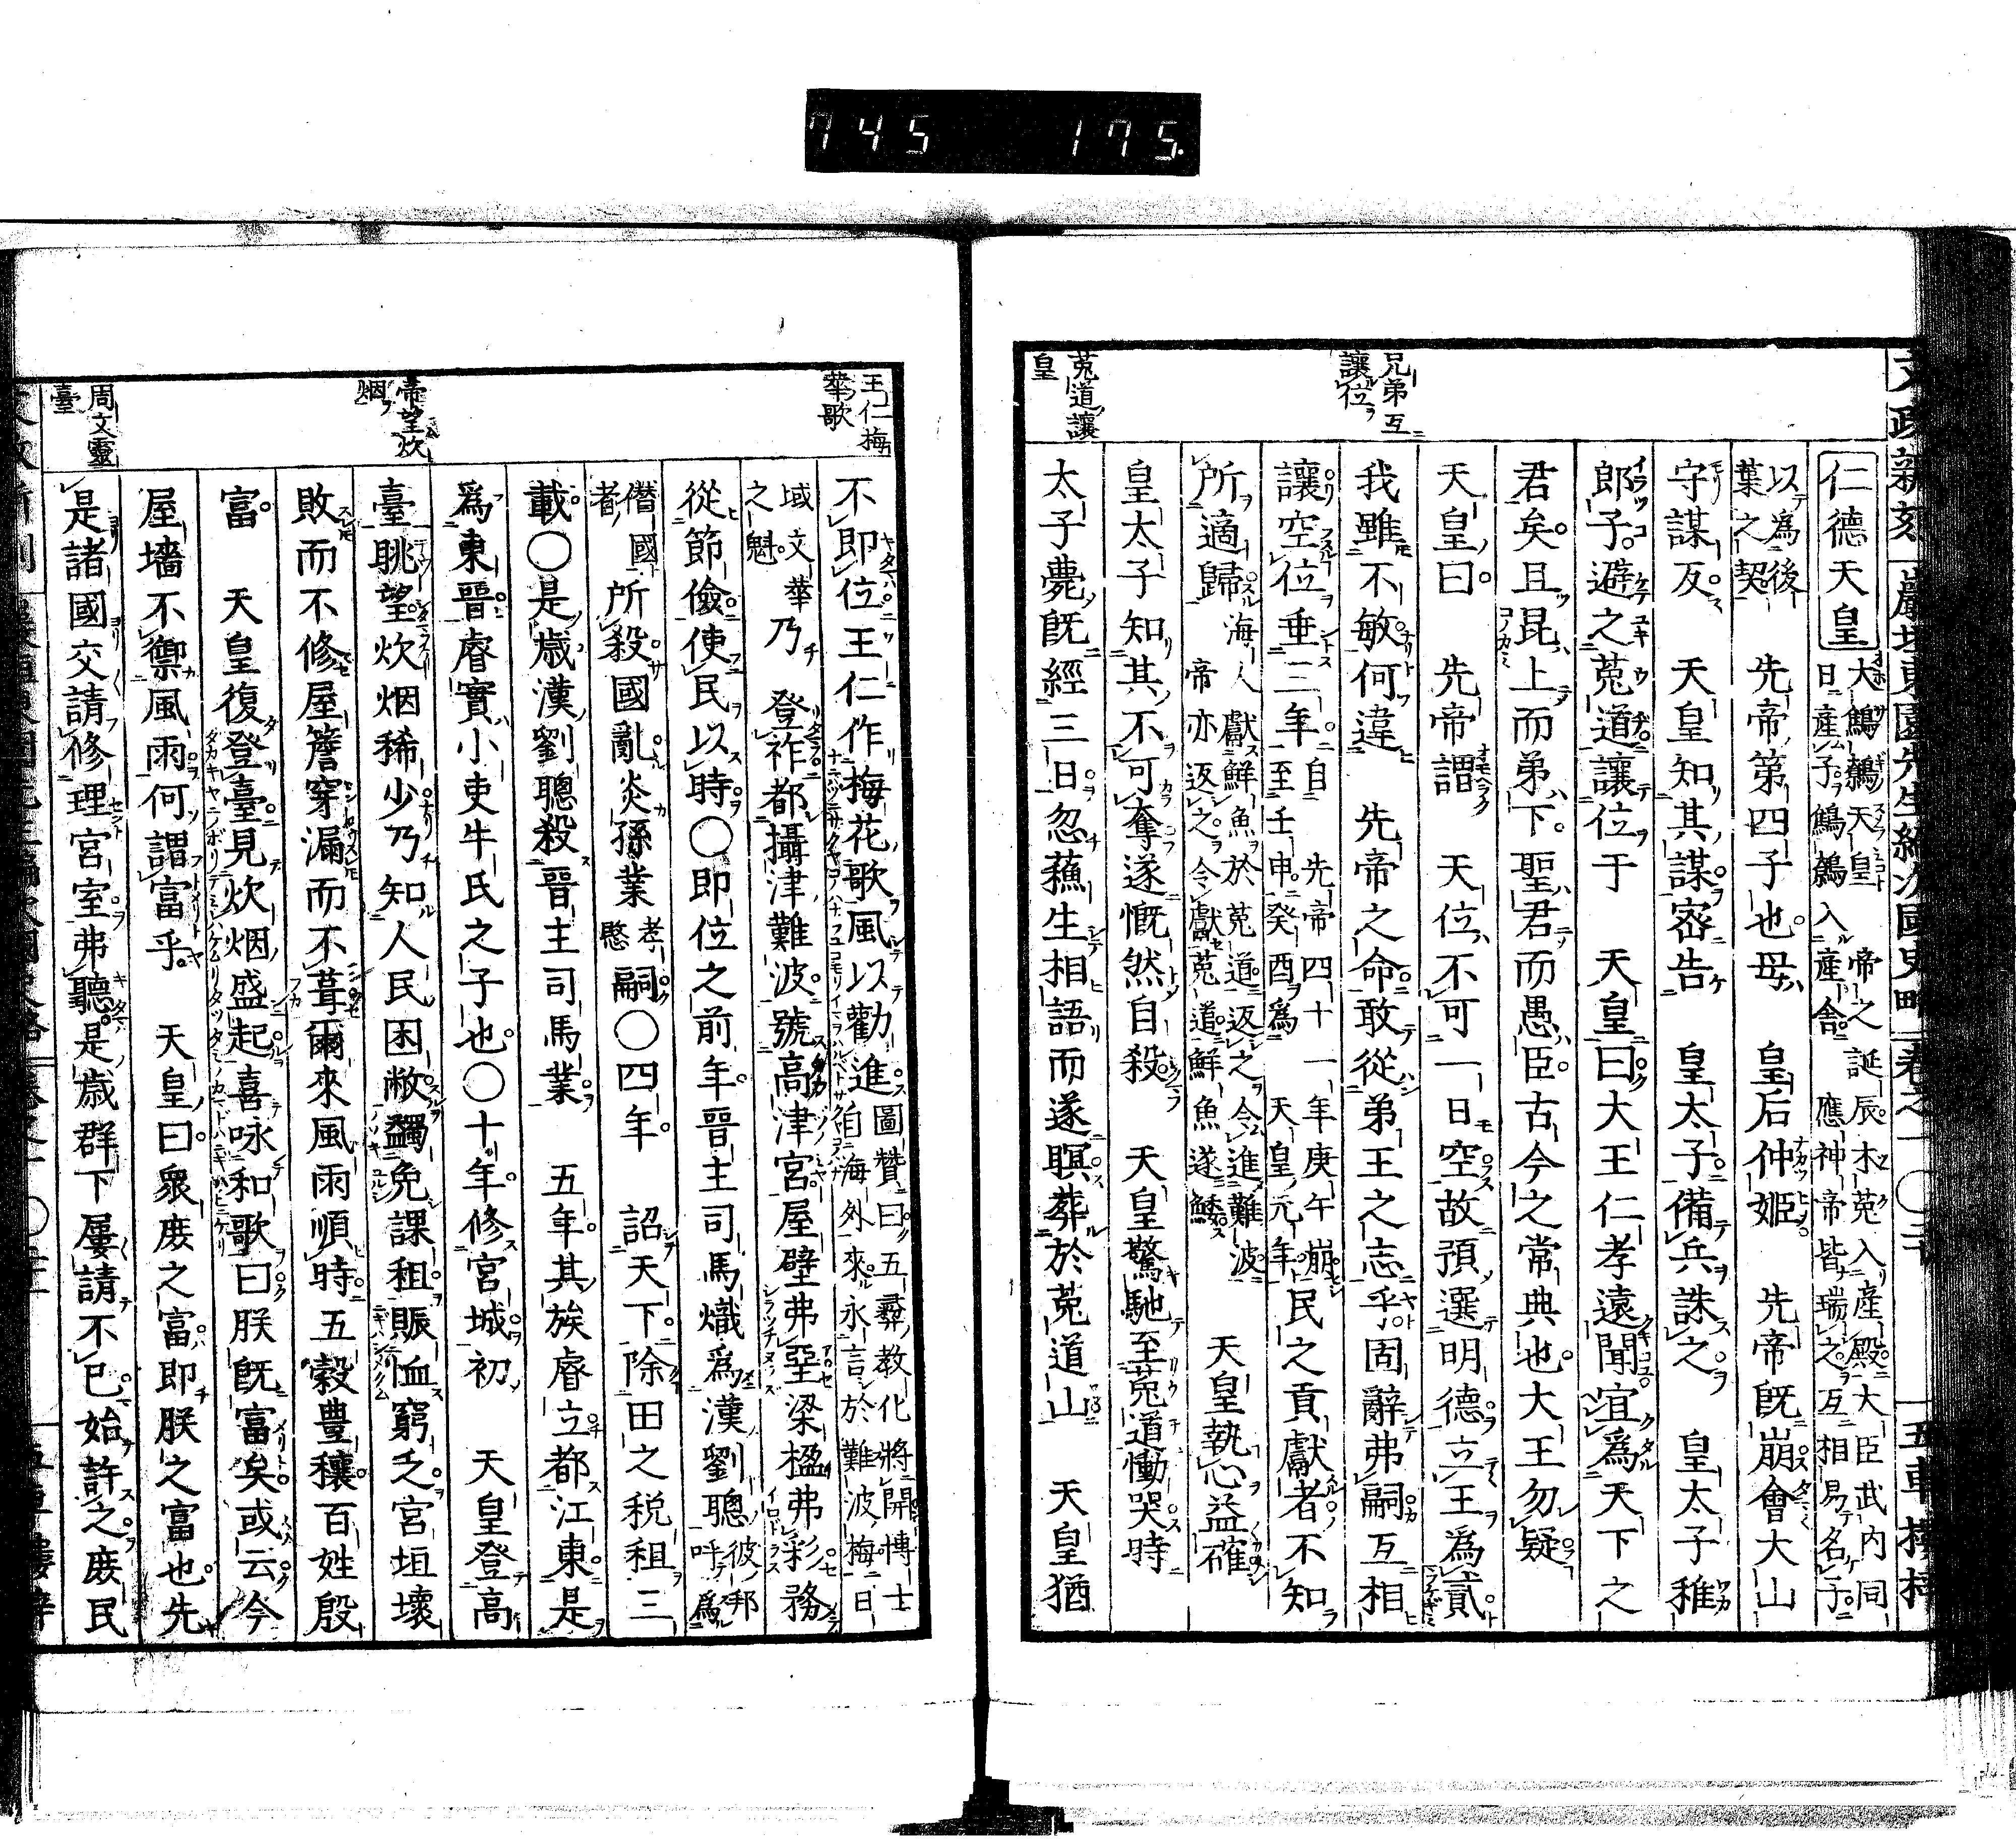 745 175.
文政新刻 巖垣東園先生編次國史略 卷之一 〇二十 五車樓梓
兄弟互
讓位
菟道讓
皇
仁德天皇 大鷦鷯天皇 帝之誕辰木菟入產殿大臣武内同
日產子鷦鷯入產舍應神帝皆瑞之互相易名子
以為後
葉之契 先帝第四子也母 皇后仲姫 先帝既崩會大山
守謀反 天皇知其謀密告 皇太子備兵誅之 皇太子稚
郎子避之菟道讓位于 天皇曰大王仁孝遠聞宜為天下之
君矣且昆上而弟下聖君而愚臣古今之常典也大王勿疑
天皇曰 先帝謂 天位不可一日空故預選明德立王為貳
我雖不敏何違 先帝之命敢從弟王之志乎固辭弗嗣互相
讓空位垂三年 自 先帝四十一年庚午崩
至壬申癸酉為 天皇元年 民之貢獻者不知
所適歸 海人獻鮮魚於菟道返之令進難波
帝亦返之令獻菟道鮮魚遂鯘 天皇執心益確
皇太子知其不可奪遂慨然自殺 天皇驚馳至菟道慟哭時
太子薨既經三日忽蘓生相語而遂瞑葬於菟道山 天皇猶
王仁梅
華歌
帝望炊
烟
周文靈
臺
不即位王仁作梅花歌風以勸進 圖贊曰五彝教化將開博士
自海外來永言於難波梅日
域文華
之魁 乃 登祚都攝津難波號高津宮屋壁弗堊梁楹弗彩務
從節儉使民以時〇即位之前年晉主司馬熾為漢劉聰 彼邦
呼為
僭國
者 所殺國亂炎孫業 孝
愍 嗣〇四年 詔天下除田之税租三
載〇是歲漢劉聰殺晉主司馬業 五年其族睿立都江東是
為東晉睿實小吏牛氏之子也〇十年修宮城初 天皇登高
臺眺望炊烟稀少乃知人民困敝蠲免課租賑恤窮乏宮垣壞
敗而不修屋簷穿漏而不葺爾來風雨順時五穀豊穰百姓殷
富 天皇復登臺見炊烟盛起喜咏和歌曰朕既富矣或云今
屋墻不禦風雨何謂富乎 天皇曰衆庻之富即朕之富也先
是諸國交請修理宮室弗聽是歲群下屢請不已始許之庻民